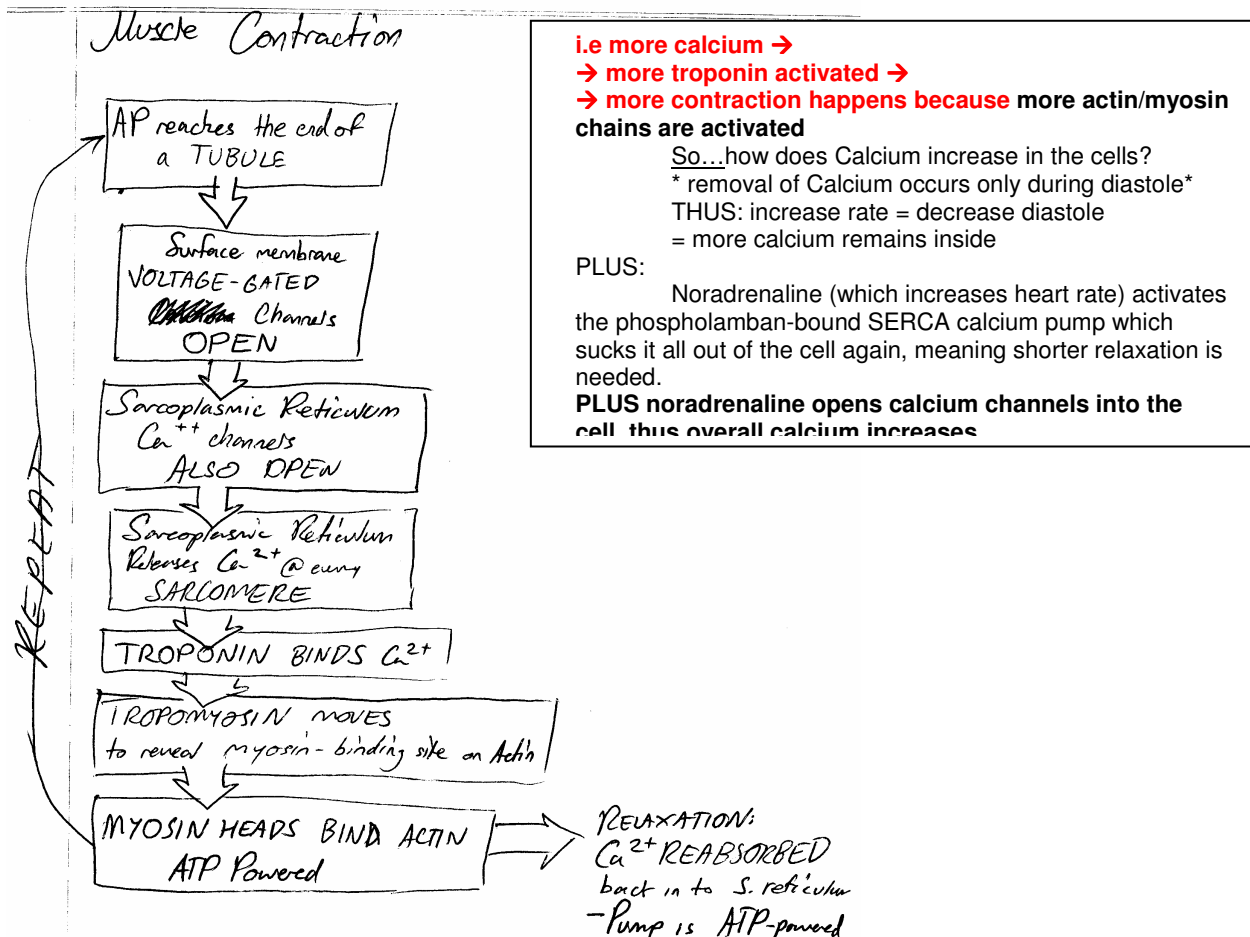 Muscle Contraction
AP reaches the end of
a TUBULE
Surface membrane
VOLTAGE-GATED
Channels
OPEN
Sarcoplasmic Reticulum
Ca++ channels
ALSO OPEN
Sarcoplasmic Reticulum
Releases Ca2+ @ every
SARCOMERE
TROPONIN BINDS Ca2+
TROPOMYOSIN MOVES
to reveal myosin-binding site on Actin
MYOSIN HEADS BIND ACTIN
ATP Powered
REPEAT
RELAXATION:
Ca2+ REABSORBED
back in to S. reticulum
- Pump is ATP-powered
i.e more calcium →
→ more troponin activated →
→ more contraction happens because more actin/myosin
chains are activated
So…how does Calcium increase in the cells?
* removal of Calcium occurs only during diastole*
THUS: increase rate = decrease diastole
= more calcium remains inside
PLUS:
Noradrenaline (which increases heart rate) activates
the phospholamban-bound SERCA calcium pump which
sucks it all out of the cell again, meaning shorter relaxation is
needed.
PLUS noradrenaline opens calcium channels into the
cell, thus overall calcium increases